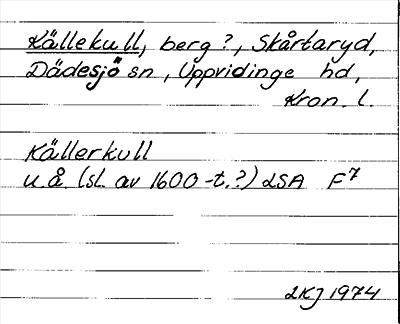 Källekull, berg?, Skårtaryd,
Dädesjö sn, Uppvidinge hd,
Kron. l.
Källerkull
u.å. (sl. av 1600-t.?) LSA F7
LKJ 1974